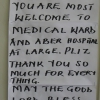 YOU ARE MOST
WELCOME TO
MEDICAL WARD
AND ABER HOSPITAL
AT LARGE, PLIZ.
THANK YOU SO
MUCH FOR EVERY
THING.
MAY THE GOOD
LORD BLESS